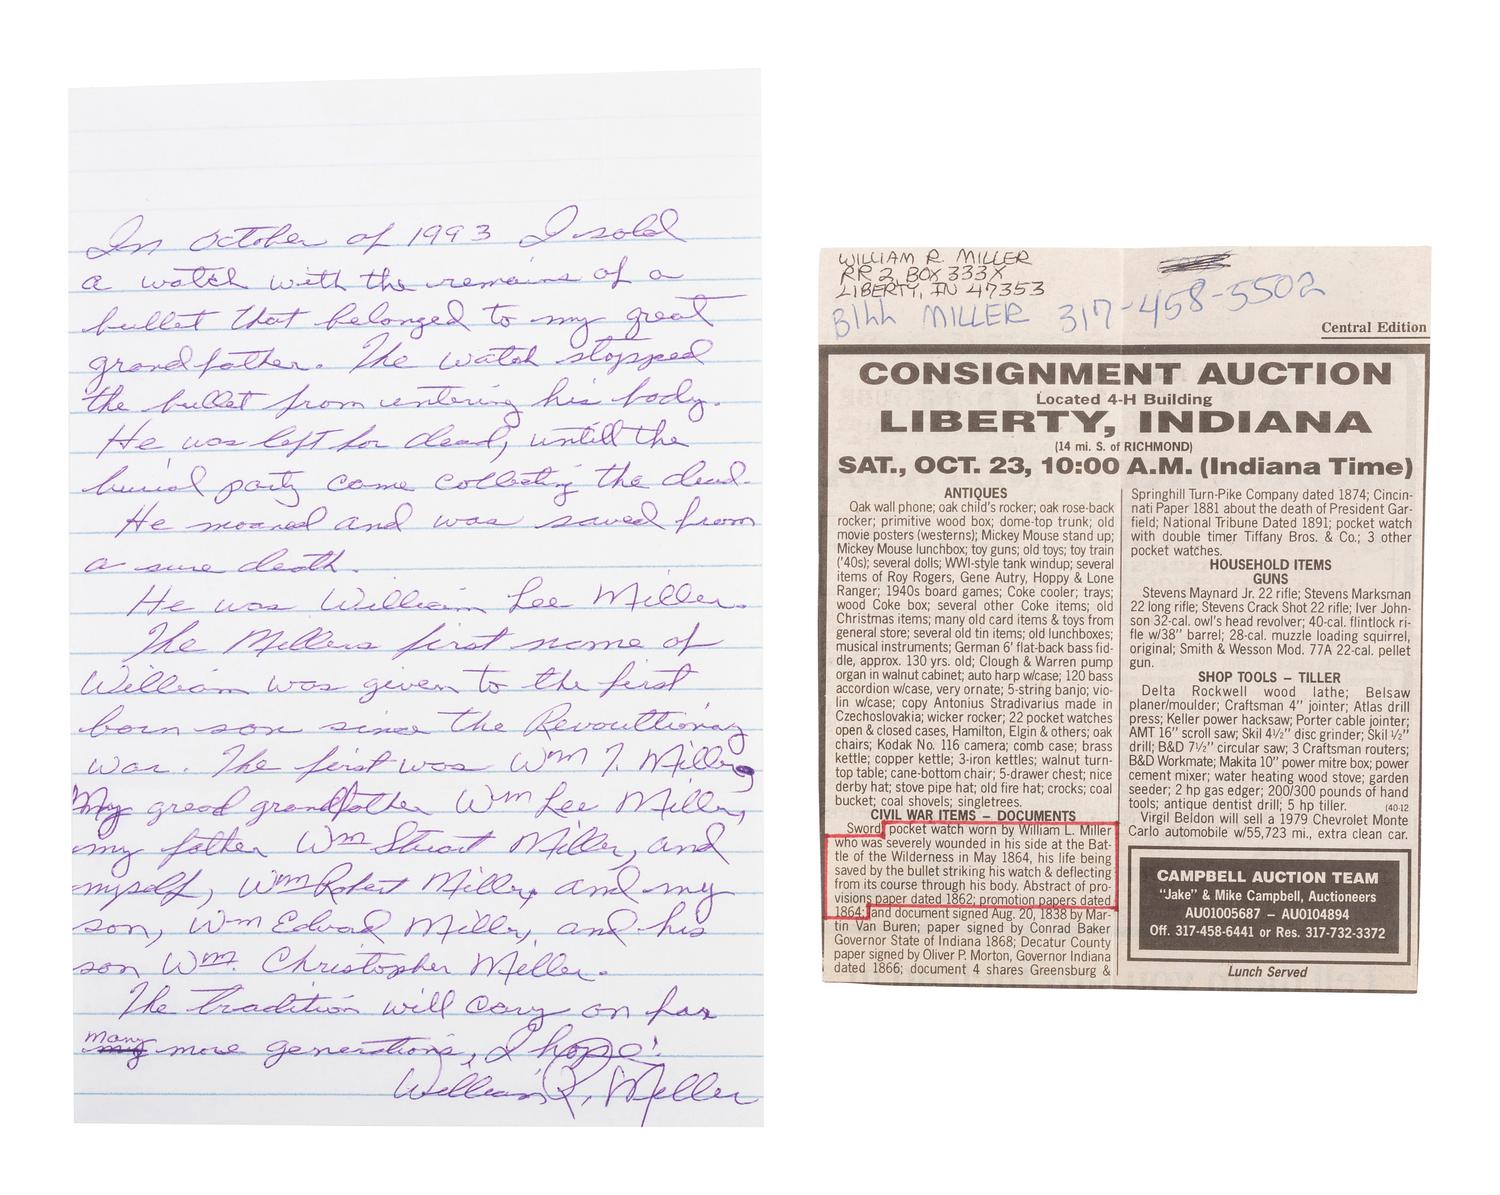 In October of 1993 I sold
a watch with the remains of a
bullet that belonged to my great
grandfather. The watch stopped
the bullet from entering his body.
He was left for dead, untill the
burial party came collecting the dead.
He moaned and was saved from
a sure death.
He was William Lee Miller.
The Millers first name of
William was given to the first
born son since the Revoultionay
war. The first was Wm T. Miller,
My gread grandfather Wm Lee Miller,
my father Wm Stuart Miller, and
myself, Wm Robert Miller, and my
son, Wm Edward Miller, and his
son Wm. Christopher Miller.
The tradition will cary on for
many more generations, I hope!
William R. Miller
WILLIAM R. MILLER
RR 2, BOX 333X
LIBERTY, IN 47353
BILL MILLER 317-458-5502
Central Edition
CONSIGNMENT AUCTION
Located 4-H Building
LIBERTY, INDIANA
(14 mi. S. of RICHMOND)
SAT., OCT. 23, 10:00 A.M. (Indiana Time)
ANTIQUES
Oak wall phone; oak child's rocker; oak rose-back
rocker; primitive wood box; dome-top trunk; old
movie posters (westerns); Mickey Mouse stand up;
Mickey Mouse lunchbox; toy guns; old toys; toy train
('40s); several dolls; WWI-style tank windup; several
items of Roy Rogers, Gene Autry, Hoppy & Lone
Ranger; 1940s board games; Coke cooler; trays;
wood Coke box; several other Coke items; old
Christmas items; many old card items & toys from
general store; several old tin items; old lunchboxes;
musical instruments; German 6' flat-back bass fid-
dle, approx. 130 yrs. old; Clough & Warren pump
organ in walnut cabinet; auto harp w/case; 120 bass
accordion w/case, very ornate; 5-string banjo; vio-
lin w/case; copy Antonius Stradivarius made in
Czechoslovakia; wicker rocker; 22 pocket watches
open & closed cases, Hamilton, Elgin & others; oak
chairs; Kodak No. 116 camera; comb case; brass
kettle; copper kettle; 3-iron kettles; walnut turn-
top table; cane-bottom chair; 5-drawer chest; nice
derby hat; stove pipe hat; old fire hat; crocks; coal
bucket; coal shovels; singletrees.
CIVIL WAR ITEMS – DOCUMENTS
Sword; pocket watch worn by William L. Miller
who was severely wounded in his side at the Bat-
tle of the Wilderness in May 1864, his life being
saved by the bullet striking his watch & deflecting
from its course through his body. Abstract of pro-
visions paper dated 1862; promotion papers dated
1864; and document signed Aug. 20, 1838 by Mar-
tin Van Buren; paper signed by Conrad Baker
Governor State of Indiana 1868; Decatur County
paper signed by Oliver P. Morton, Governor Indiana
dated 1866; document 4 shares Greensburg &
Springhill Turn-Pike Company dated 1874; Cincin-
nati Paper 1881 about the death of President Gar-
field; National Tribune Dated 1891; pocket watch
with double timer Tiffany Bros. & Co.; 3 other
pocket watches.
HOUSEHOLD ITEMS
GUNS
Stevens Maynard Jr. 22 rifle; Stevens Marksman
22 long rifle; Stevens Crack Shot 22 rifle; Iver John-
son 32-cal. owl's head revolver; 40-cal. flintlock ri-
fle w/38" barrel; 28-cal. muzzle loading squirrel,
original; Smith & Wesson Mod. 77A 22-cal. pellet
gun.
SHOP TOOLS – TILLER
Delta Rockwell wood lathe; Belsaw
planer/moulder; Craftsman 4" jointer; Atlas drill
press; Keller power hacksaw; Porter cable jointer;
AMT 16" scroll saw; Skil 4½" disc grinder; Skil ½"
drill; B&D 7½" circular saw; 3 Craftsman routers;
B&D Workmate; Makita 10" power mitre box; power
cement mixer; water heating wood stove; garden
seeder; 2 hp gas edger; 200/300 pounds of hand
tools; antique dentist drill; 5 hp tiller. (40-12
Virgil Beldon will sell a 1979 Chevrolet Monte
Carlo automobile w/55,723 mi., extra clean car.
CAMPBELL AUCTION TEAM
"Jake" & Mike Campbell, Auctioneers
AU01005687 – AU0104894
Off. 317-458-6441 or Res. 317-732-3372
Lunch Served